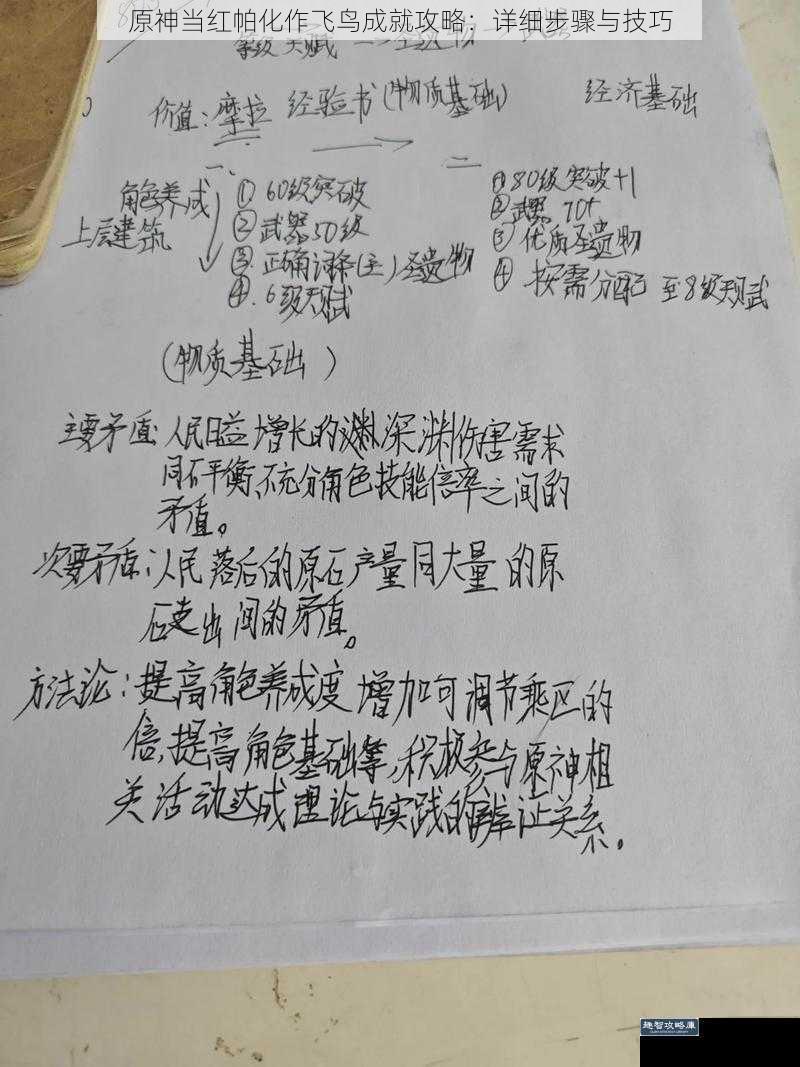 原神当红帕化作飞鸟成就攻略：详细步骤与技巧
等级 天赋 一 圣遗物 一 武器
价值：摩拉 经验书(物质基础) 经济基础
一、
二
角色养成
上层建筑
① 60级突破
② 武器50级
③ 正确词条(主)圣遗物
④ 6级天赋
① 80级突破+1
② 武器 70+
③ 优质圣遗物
④ 按需分配 至8级天赋
(物质基础)
主要矛盾：人民日益增长的深渊伤害需求
同不平衡、不充分角色技能倍率之间的
矛盾。
次要矛盾：人民落后的原石产量同大量的原
石支出间的矛盾。
方法论：提高角色养成度 增加可调节乘区的
倍,提高角色基础等,积极参与原神相
关活动达成理论与实践的辨证关系。
趣智攻略库